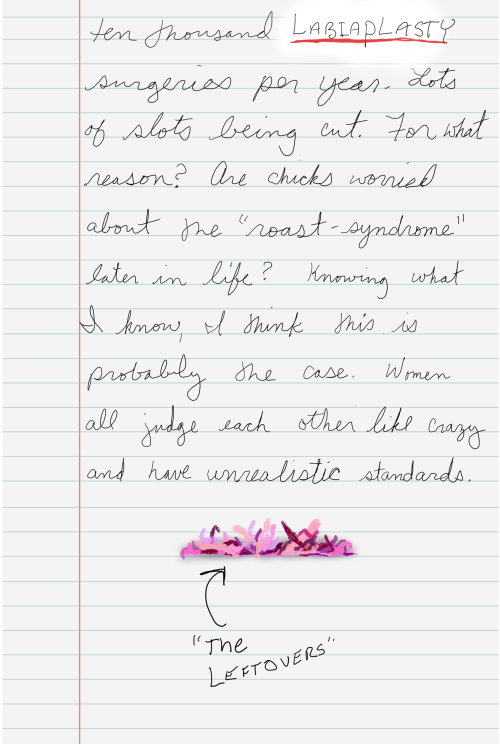 ten thousand LABIAPLASTY
surgeries per year. Lots
of slots being cut. For what
reason? Are chicks worried
about the "roast-syndrome"
later in life? Knowing what
I know, I think this is
probably the case. Women
all judge each other like crazy
and have unrealistic standards.
"The
LEFTOVERS"